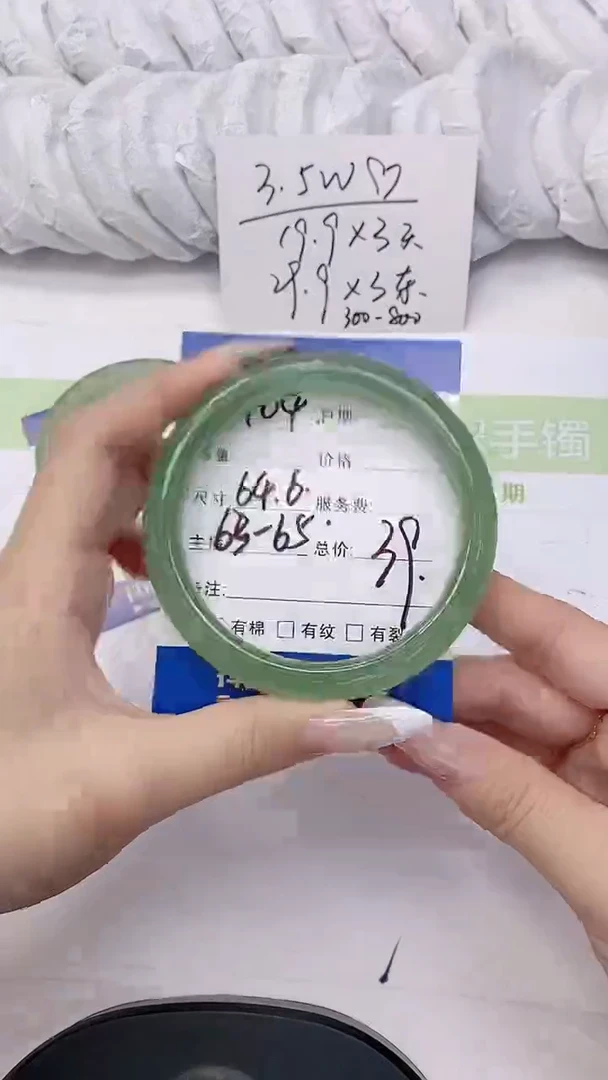 3.5W♡
19.9×3天
29.9×3条
300-800
手镯
期
价格
尺寸 64.6. 服务费:
63-65. 总价: 39.
注:
有棉 □ 有纹 □ 有裂